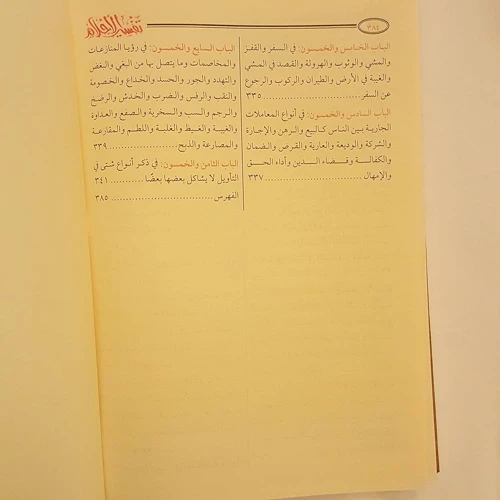 ٣٨٤
تفسير الأحلام
الباب الخامس والخمسون: في السفر والقفز
والمشي والوثوب والهرولة والقصد في المشي
والغيبة في الأرض والطيران والركوب والرجوع
عن السفر ................ ٣٣٥
الباب السادس والخمسون: في أنواع المعاملات
الجارية بين الناس كالبيع والرهن والإجارة
والشركة والوديعة والعارية والقرض والضمان
والكفالة وقضاء الدين وأداء الحق
والإمهال ................ ٣٣٧
الباب السابع والخمسون: في رؤيا المنازعات
والمخاصمات وما يتصل بها من البغي والبغض
والتهدد والجور والحسد والخداع والخصومة
والنقب والرفس والضرب والخدش والرضخ
والرجم والسب والسخرية والصفع والعداوة
والغيبة والغيظ والغلبة واللطم والمقارعة
والمصارعة والذبح ................ ٣٣٩
الباب الثامن والخمسون: في ذكر أنواع شتى في
التأويل لا يشاكل بعضها بعضًا ........... ٣٤١
الفهرس ................ ٣٨٥